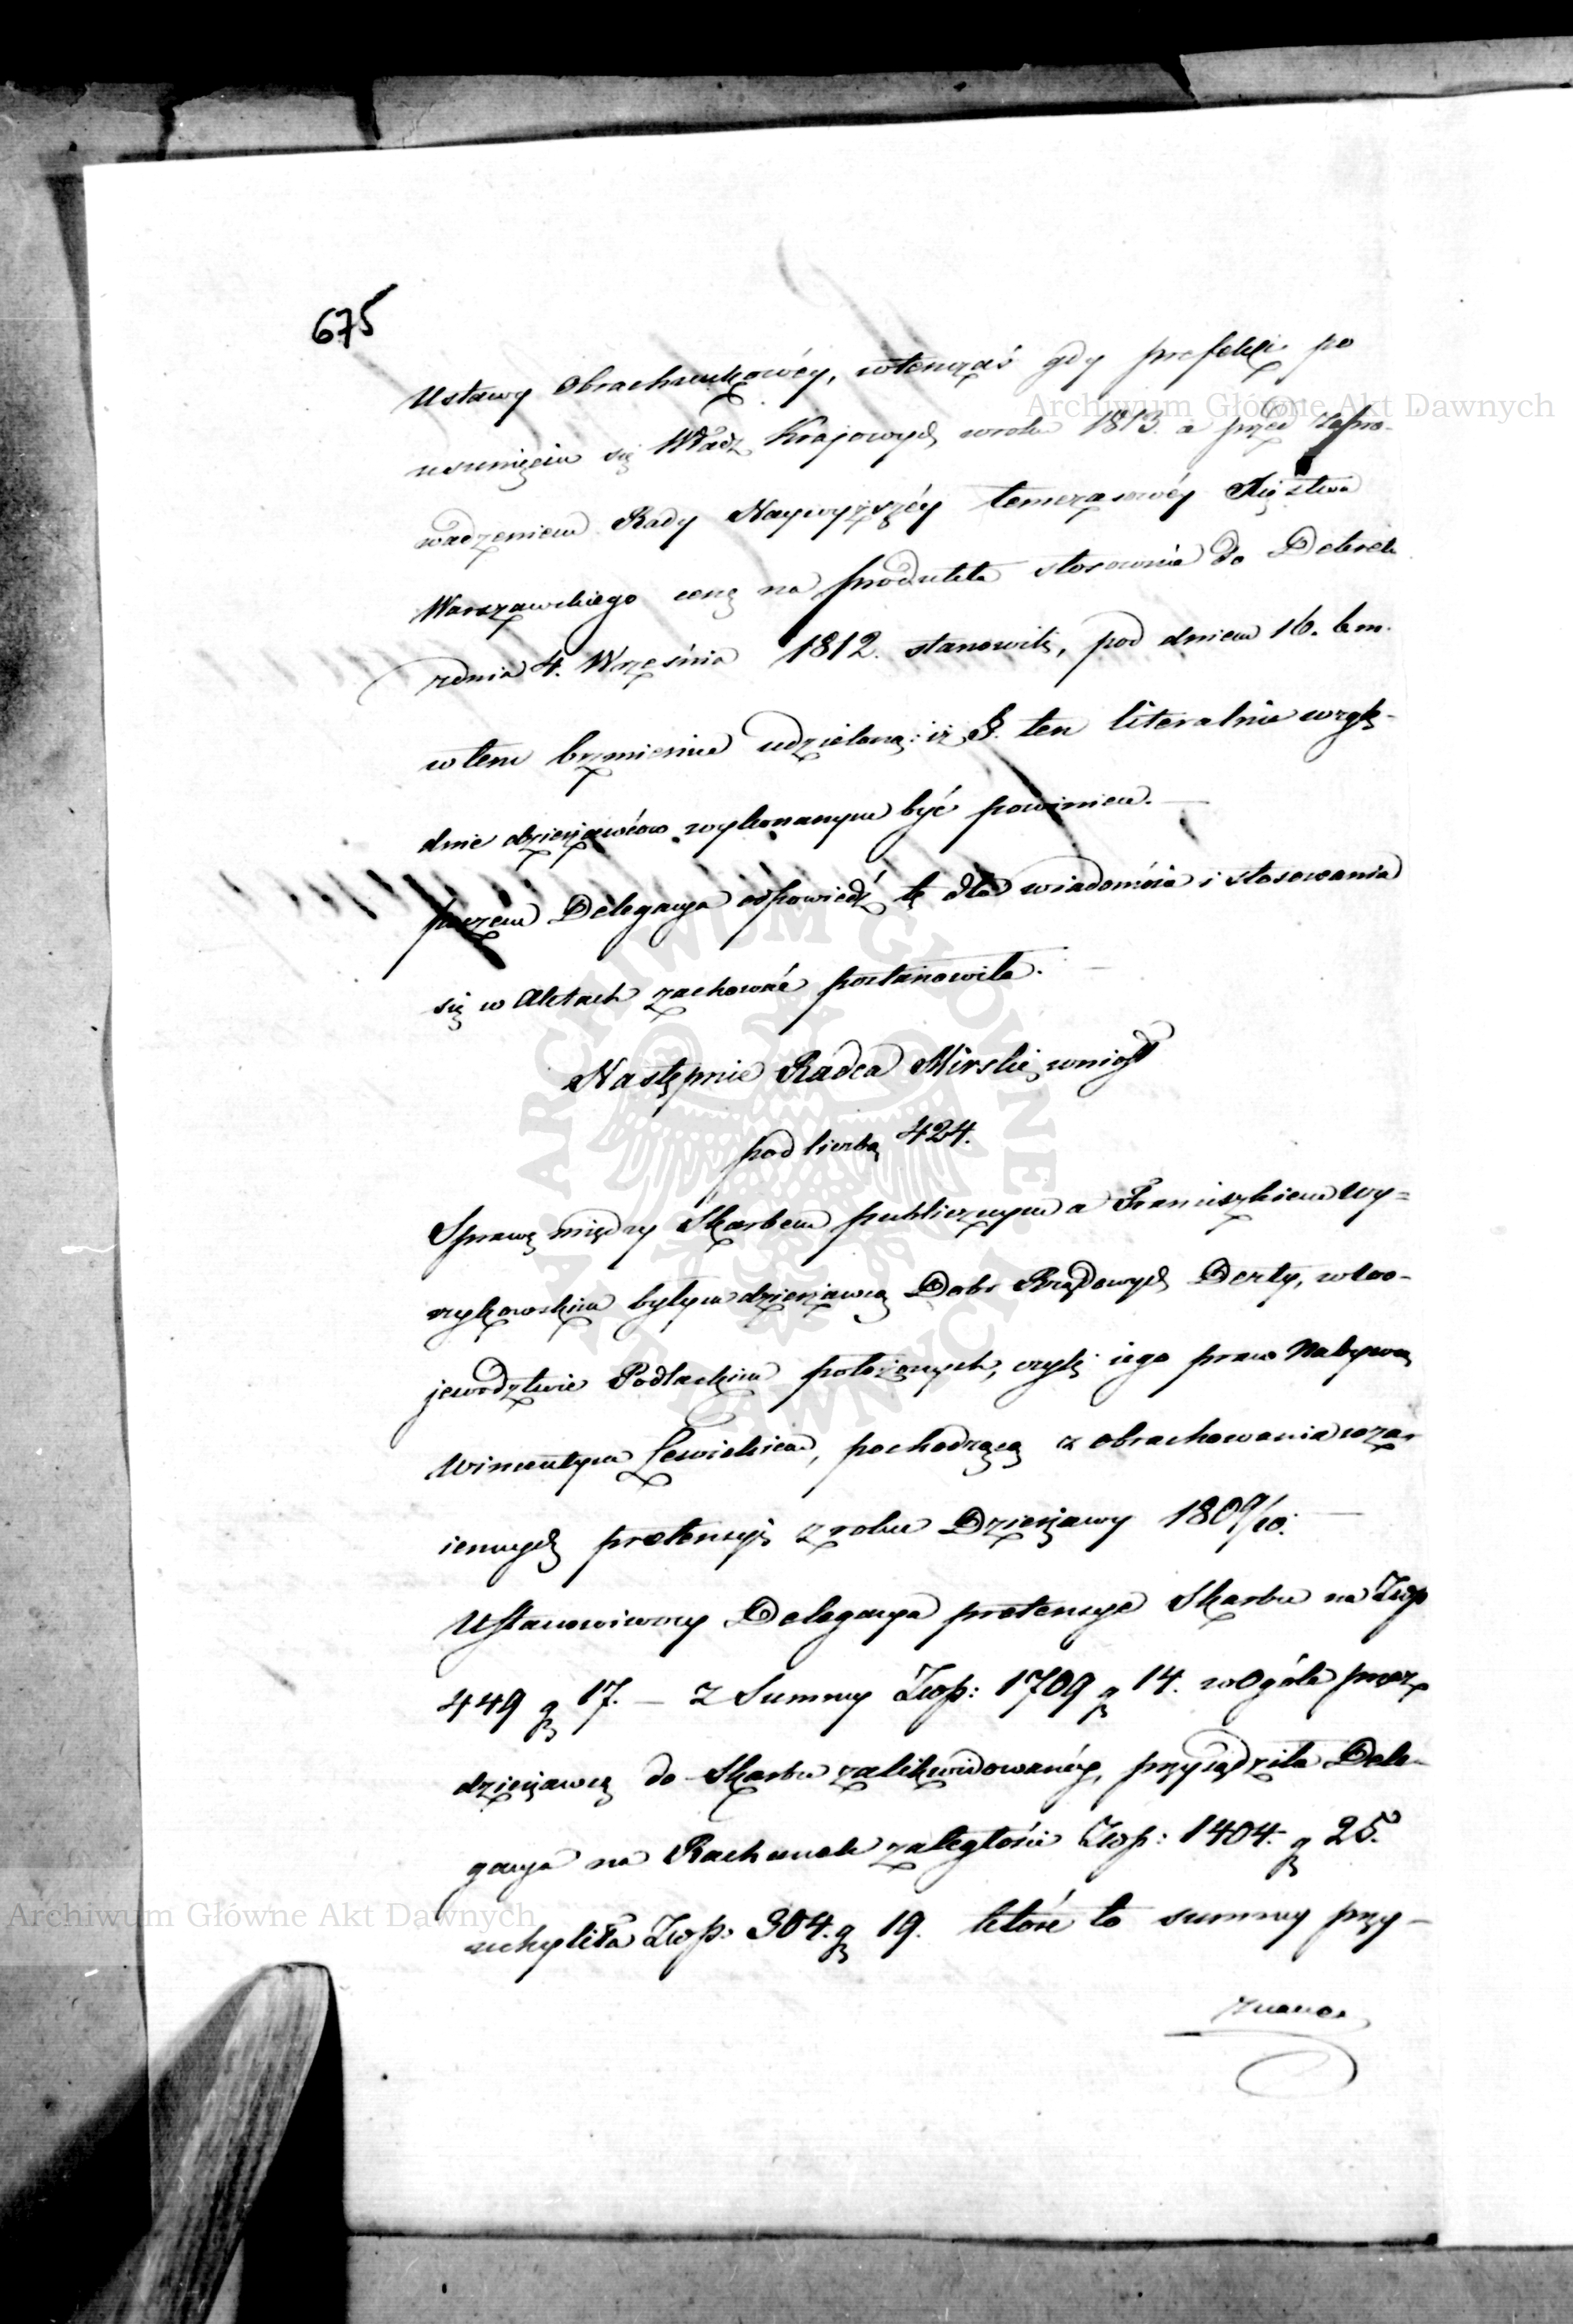 675
Ustawy Obrachunkowéy, wtenczas gdy prefekci po
usunięciu się Władz Krajowych wroku 1813. a przed zapro-
wadzeniem Rady Naywyższéy temczasowéy Xięstwa
Warszawskiego cenę na produkta stosownie do Dekretu
zdnia 4. Września 1812. stanowili, pod dniem 16. b.m.
wtem brzmieniu udzieloną: iż §. ten literalnie wzglę-
dnie dzierżawców wykonanym być powinien. —
poczem Delegacya odpowiedź tę dla wiadomości i stosowania
się w Aktach zachować postanowiła. —
Następnie Radca Mirski wniósł
pod liczbą 424.
Sprawę między Skarbem publicznym a Franciszkiem Wy=
czykowskim byłym dzierżawcą Dobr Rządowych Derły, wWo-
jewództwie Podlaskim położonych, czyli iego praw Nabywcą
Wincentym Lewickim, pochodzącą z obrachowania wza-
iemnych pretensyi z roku Dzierżawy 1809/10. —
Ustanowiwszy Delegacya pretensye Skarbu na Złp
449 gr 17. — z Summy Złp: 1709 gr 14. wogóle przez
dzierżawcę do Skarbu zalikwidowanéy, przysądziła Dele-
gacya na Rachunek zaległości Złp: 1404. gr 25.
uchyliła Złp: 304. gr 19. które to summy przy-
znane
Archiwum Główne Akt Dawnych
ARCHIWUM GŁÓWNE AKT DAWNYCH
Archiwum Główne Akt Dawnych